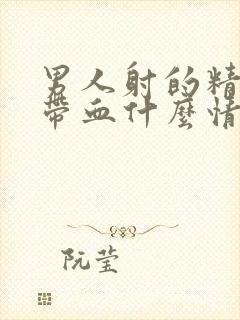 男人射的精
帶血什麼情
阮莹